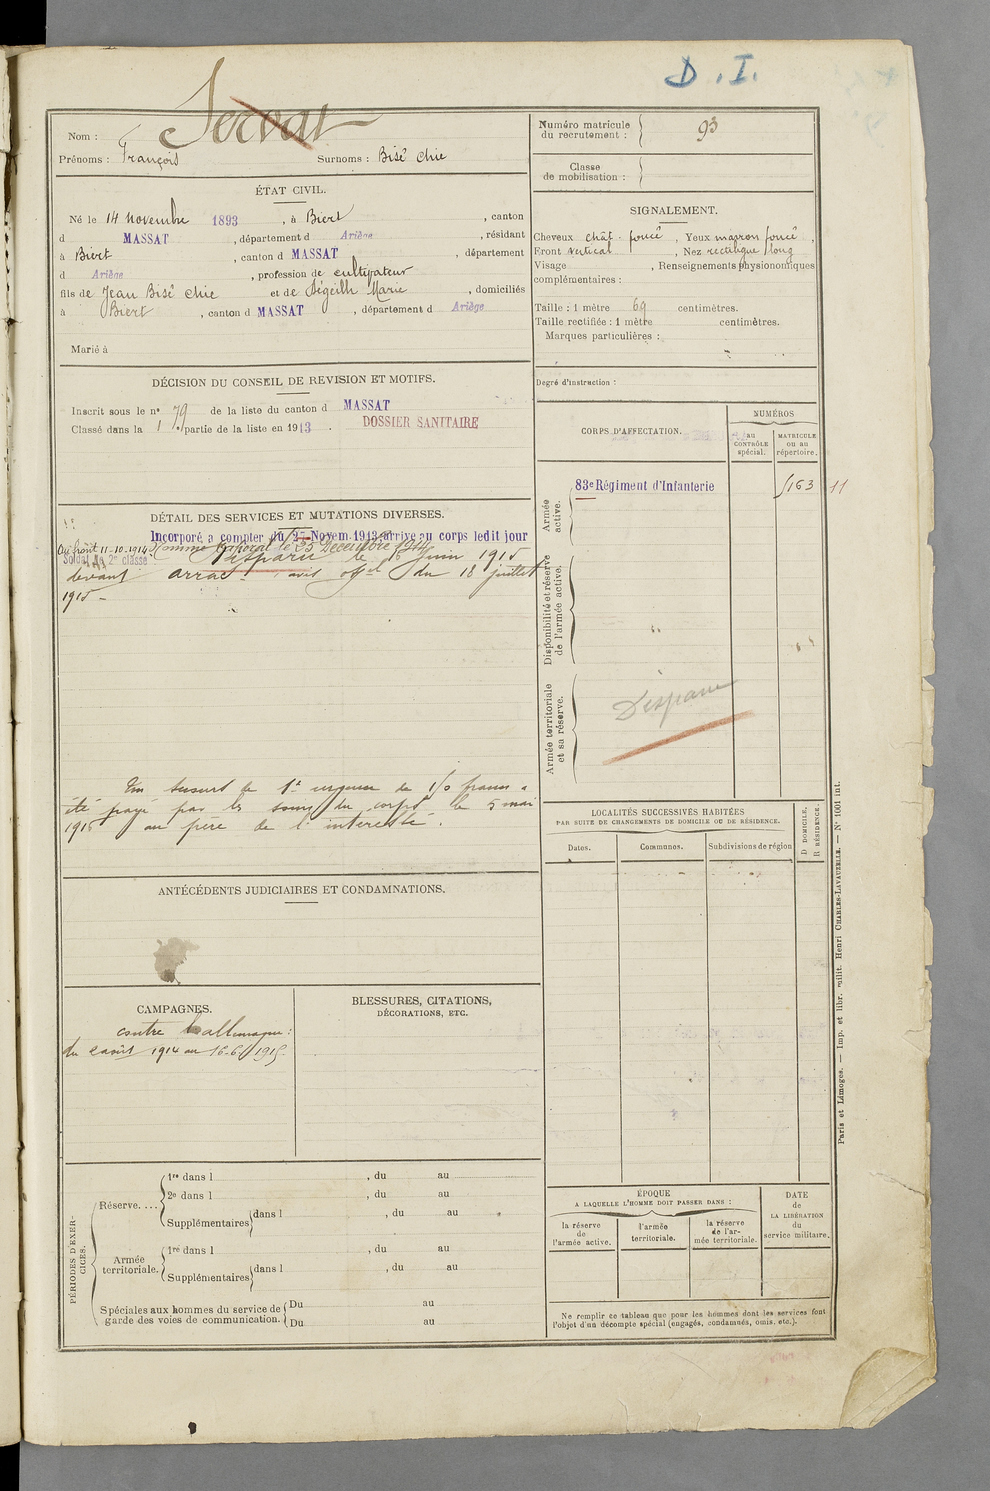 D. I.
Nom : Servat
Prénoms : François Surnoms : Bisé Chie
Numéro matricule du recrutement : 93
Classe de mobilisation :
ÉTAT CIVIL.
Né le 14 Novembre 1893, à Biert, canton
d MASSAT, département d Ariège, résidant
à Biert, canton d MASSAT, département
d Ariège, profession de cultivateur
fils de Jean Bisé Chie et de Ségeilh Marie, domiciliés
à Biert, canton d MASSAT, département d Ariège
Marié à
SIGNALEMENT.
Cheveux chât. foncé, Yeux marron foncé,
Front vertical, Nez rectiligne long
Visage , Renseignements physionomiques
complémentaires :
Taille : 1 mètre 69 centimètres.
Taille rectifiée : 1 mètre centimètres.
Marques particulières :
Degré d'instruction :
DÉCISION DU CONSEIL DE REVISION ET MOTIFS.
Inscrit sous le nº 79 de la liste du canton d MASSAT
Classé dans la 1 partie de la liste en 1913.
DOSSIER SANITAIRE
CORPS D'AFFECTATION.
NUMÉROS
au CONTRÔLE spécial.
MATRICULE ou au répertoire.
Armée active.
83e Régiment d'Infanterie 5163 11
Disponibilité et réserve de l'armée active.
Armée territoriale et sa réserve.
Disparu
DÉTAIL DES SERVICES ET MUTATIONS DIVERSES.
Incorporé à compter du 27 Novem. 1913, arrivé au corps ledit jour
Soldat de 2e classe
Au front 11-10-1914 Nommé Caporal le 25 Décembre 1914
Disparu le 16 juin 1915
devant Arras, avis Offel du 18 juillet
1915 -
Un secours de 1re urgence de 150 francs a
été payé par les soins du corps le 5 mai
1916 au père de l'interessé.
LOCALITÉS SUCCESSIVES HABITÉES
PAR SUITE DE CHANGEMENTS DE DOMICILE OU DE RÉSIDENCE.
Dates. Communes. Subdivisions de région
D DOMICILE.
R RÉSIDENCE.
ANTÉCÉDENTS JUDICIAIRES ET CONDAMNATIONS.
CAMPAGNES.
contre l'allemagne :
du 2 août 1914 au 16-6-1915
BLESSURES, CITATIONS,
DÉCORATIONS, ETC.
PÉRIODES D'EXERCICES.
Réserve....
1re dans l , du au
2e dans l , du au
Supplémentaires dans l , du au
Armée territoriale.
1re dans l , du au
Supplémentaires dans l , du au
Spéciales aux hommes du service de
garde des voies de communication.
Du au
Du au
ÉPOQUE
A LAQUELLE L'HOMME DOIT PASSER DANS :
la réserve de l'armée active.
l'armée territoriale.
la réserve de l'armée territoriale.
DATE de LA LIBÉRATION du service militaire.
Ne remplir ce tableau que pour les hommes dont les services font
l'objet d'un décompte spécial (engagés, condamnés, omis, etc.).
Paris et Limoges. — Imp. et libr. milit. Henri CHARLES-LAVAUZELLE. — N° 1001 int.